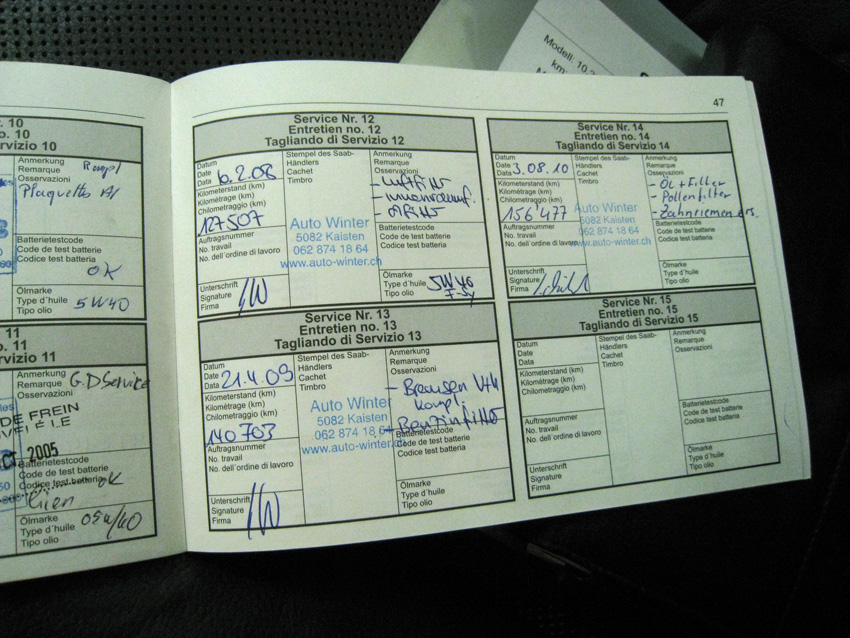 Modell: 10.
km
47
10
10
rvizio 10
Anmerkung
Remarque
Osservazioni
Plaquettes
Batterietestcode
Code de test batterie
Codice test batteria
OK
Ölmarke
Type d'huile
Tipo olio
5W40
11
11
rvizio 11
Anmerkung
Remarque
Osservazioni
G.D Service
DE FREIN
2005
Batterietestcode
Code de test batterie
Codice test batteria
OK
Ölmarke
Type d'huile
Tipo olio
05w/40
Service Nr. 12
Entretien no. 12
Tagliando di Servizio 12
Datum
Date
Data
6.2.08
Kilometerstand (km)
Kilométrage (km)
Chilometraggio (km)
127507
Auftragsnummer
No. travail
No. dell'ordine di lavoro
Unterschrift
Signature
Firma
Stempel des Saab-
Händlers
Cachet
Timbro
Auto Winter
5082 Kaisten
062 874 18 64
www.auto-winter.ch
Anmerkung
Remarque
Osservazioni
- Luftfilt
- Ölfilt
Batterietestcode
Code de test batterie
Codice test batteria
Ölmarke
Type d'huile
Tipo olio
5W40
Service Nr. 13
Entretien no. 13
Tagliando di Servizio 13
Datum
Date
Data
21.4.09
Kilometerstand (km)
Kilométrage (km)
Chilometraggio (km)
140703
Auftragsnummer
No. travail
No. dell'ordine di lavoro
Unterschrift
Signature
Firma
Stempel des Saab-
Händlers
Cachet
Timbro
Auto Winter
5082 Kaisten
062 874 18 64
www.auto-winter.ch
Anmerkung
Remarque
Osservazioni
- Bremsen V+h
kompl.
- Benzinfilt
Batterietestcode
Code de test batterie
Codice test batteria
Ölmarke
Type d'huile
Tipo olio
Service Nr. 14
Entretien no. 14
Tagliando di Servizio 14
Datum
Date
Data
3.08.10
Kilometerstand (km)
Kilométrage (km)
Chilometraggio (km)
156'477
Auftragsnummer
No. travail
No. dell'ordine di lavoro
Unterschrift
Signature
Firma
Stempel des Saab-
Händlers
Cachet
Timbro
Auto Winter
5082 Kaisten
062 874 18 64
www.auto-winter.ch
Anmerkung
Remarque
Osservazioni
- Öl + Filter
- Pollenfilter
- Zahnriemen ers.
Batterietestcode
Code de test batterie
Codice test batteria
Ölmarke
Type d'huile
Tipo olio
Service Nr. 15
Entretien no. 15
Tagliando di Servizio 15
Datum
Date
Data
Kilometerstand (km)
Kilométrage (km)
Chilometraggio (km)
Auftragsnummer
No. travail
No. dell'ordine di lavoro
Unterschrift
Signature
Firma
Stempel des Saab-
Händlers
Cachet
Timbro
Anmerkung
Remarque
Osservazioni
Batterietestcode
Code de test batterie
Codice test batteria
Ölmarke
Type d'huile
Tipo olio